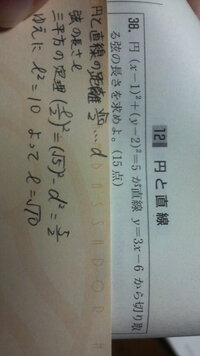 12 円と直線
38. 円 (x-1)²+(y-2)²=5 が直線 y=3x-6 から切り取
る弦の長さを求めよ。(15点)
円と直線の距離 … d
弦の長さ ℓ
三平方の定理 (ℓ/2)²=(√5)²-d²=5/2
ゆえに ℓ²=10 よって ℓ=√10